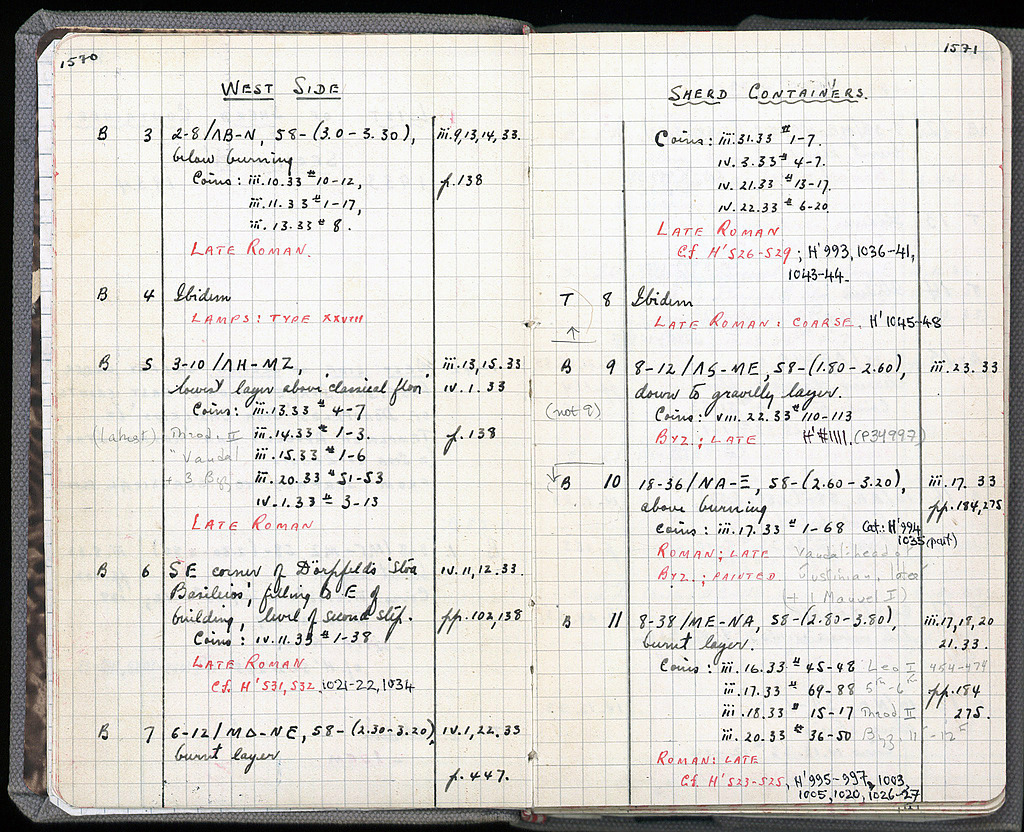 1570
WEST SIDE
B 3 2-8/ΛB-N, 58-(3.0-3.30), iii.9,13,14,33.
below burning
Coins: iii.10.33 #10-12, p.138
iii.11.33 #1-17,
iii.13.33 #8.
LATE ROMAN.
B 4 Ibidem
LAMPS: TYPE XXVIII
B 5 3-10/ΛH-MZ, iii.13,15.33
lowest layer above 'classical floor' iv.1.33
Coins: iii.13.33 #4-7
(latest) Theod. II iii.14.33 #1-3. p.138
"Vandal iii.15.33 #1-6
+ 3 Byz iii.20.33 #51-53
iv.1.33 #3-13
LATE ROMAN
B 6 SE corner of Dörpfeld's 'Stoa iv.11,12.33.
Basileios', filling B. E of
building, level of second step. pp.102,138
Coins: iv.11.33 #1-38
LATE ROMAN
Cf. H'531,532, 1021-22,1034
B 7 6-12/MΔ-NE, 58-(2.30-3.20), iv.1,22.33
burnt layer
p.447.
1571
SHERD CONTAINERS.
Coins: iii.31.33 #1-7.
iv.3.33 #4-7.
iv.21.33 #13-17.
iv.22.33 #6-20.
LATE ROMAN
Cf. H'526-529; H'993, 1036-41,
1043-44.
T 8 Ibidem
LATE ROMAN: COARSE. H'1045-48
B 9 8-12/ΛS-ME, 58-(1.80-2.60), iii.23.33
down to gravelly layer.
(not 9) Coins: viii.22.33 #110-113
BYZ.; LATE H'#1111. (P34997)
B 10 18-36/NA-Ξ, 58-(2.60-3.20), iii.17.33
above burning pp.184,275
Coins: iii.17.33 #1-68 Cat: H'994
1035(part)
ROMAN; LATE Vandal: head of
BYZ.; PAINTED Justinian, later
(+ 1 Manuel I)
B 11 8-38/ME-NA, 58-(2.80-3.80), iii.17,18,20
burnt layer. 21.33.
Coins: iii.16.33 #45-48 Leo I 454-474
iii.17.33 #69-88 5th-6th pp.184
iii.18.33 #15-17 Theod II 275.
iii.20.33 #36-50 Byz 11-12th
ROMAN: LATE
Cf. H'523-525, H'995-997, 1003,
1005, 1020, 1026-27